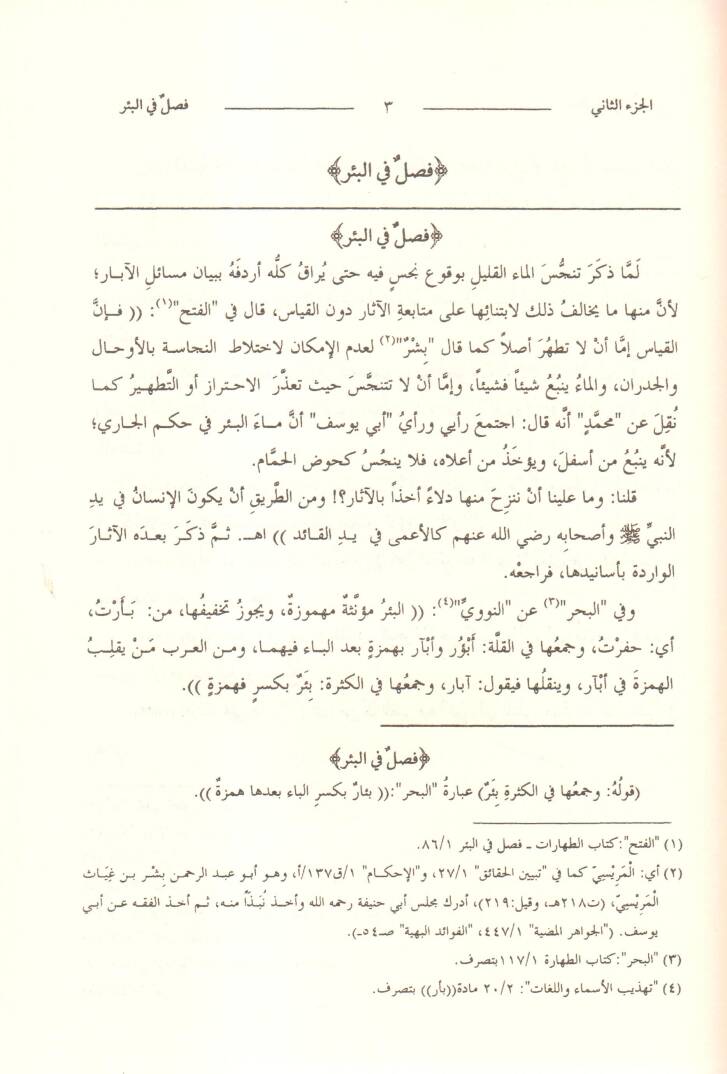 الجزء الثاني ٣ فصلٌ في البئر
﴿فصلٌ في البئر﴾
﴿فصلٌ في البئر﴾
لَمَّا ذكَرَ تنجُّسَ الماء القليلِ بوقوع نجسٍ فيه حتى يُراقُ كلُّه أردفَهُ ببيان مسائلِ الآبار؛
لأنَّ منها ما يخالفُ ذلك لابتنائِها على متابعةِ الآثار دون القياس، قال في "الفتح"(١): (( فـإنَّ
القياس إمَّا أنْ لا تطهُرَ أصلاً كما قال "بِشْرٌ"(٢) لعدمِ الإمكان لاختلاط النجاسة بالأوحال
والجدران، والماءُ ينبُعُ شيئاً فشيئاً، وإمَّا أنْ لا تتنجَّسَ حيث تعذَّرَ الاحتراز أو التَّطهيرُ كمـا
نُقِلَ عن "محمَّدٍ" أنَّه قال: اجتمعَ رأيي ورأيُ "أبي يوسف" أنَّ مـاءَ البـئر في حكـم الجـاري؛
لأنَّه ينبُعُ من أسفلَ، ويؤخَذُ من أعلاه، فلا ينجُسُ كحوض الحمَّام.
قلنا: وما علينا أنْ ننزِحَ منها دلاءً أخذاً بالآثار؟! ومن الطَّريقِ أنْ يكونَ الإنسانُ في يدِ
النبيِّ ﷺ وأصحابِه رضي الله عنهم كالأعمى في يدِ القـائد )) اهـ. ثـمَّ ذكَـرَ بعـدَه الآثـارَ
الواردة بأسانيدها، فراجعْه.
وفي "البحر"(٣) عن "النوويِّ"(٤): (( البئرُ مؤنَّثةٌ مهموزةٌ، ويجوزُ تخفيفُها، من: بَـأَرْتُ،
أي: حفرْتُ، وجمعُها في القلَّة: أَبْؤُر وأبْآر بهمزةٍ بعد البـاء فيهمـا، ومـن العـرب مَـنْ يقلِـبُ
الهمزةَ في أبْآر، وينقلُها فيقول: آبار، وجمعُها في الكثرة: بِئَرٌ بكسرٍ فهمزةٍ )).
﴿فصلٌ في البئر﴾
(قولُهُ: وجمعُها في الكثرةِ بِئَرٌ) عبارةُ "البحر":(( بئارٌ بكسرِ الباء بعدها همزةٌ )).
(١) "الفتح":كتاب الطهارات ـ فصل في البئر ٨٦/١.
(٢) أي: الْمَرِيْسِيّ كما في "تبيين الحقائق" ٢٧/١، و"الإحكام" ١/ق١٣٧/أ، وهـو أبـو عبـد الرحمـن بِشْـر بـن غِيَـاث
الْمَرِيْسِيّ، (ت٢١٨هـ، وقيل:٢١٩)، أدرك مجلس أبي حنيفة رحمه الله وأخـذ نُبَـذَاً منـه، ثـم أخـذ الفقـه عـن أبـي
يوسف. ("الجواهر المضية" ٤٤٧/١، "الفوائد البهية" صـ٥٤ـ).
(٣) "البحر":كتاب الطهارة ١١٧/١بتصرف.
(٤) "تهذيب الأسماء واللغات": ٢٠/٢ مادة((بأر)) بتصرف.